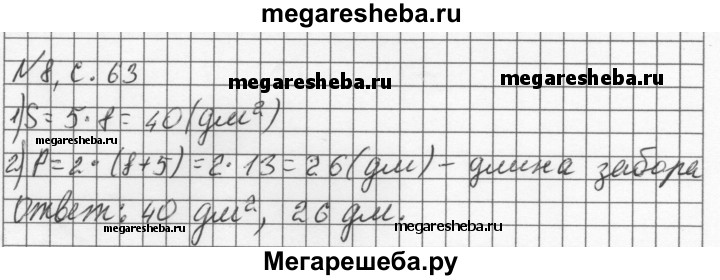 megaresheba.ru
№8, с. 63
megaresheba.ru megaresheba.ru
1) S = 5 · 8 = 40 (дм²)
megaresheba.ru
2) P = 2 · (8+5) = 2 · 13 = 26 (дм) – длина забора
Ответ: 40 дм², 26 дм.
megaresheba.ru megaresheba.ru
Мегарешеба.ру